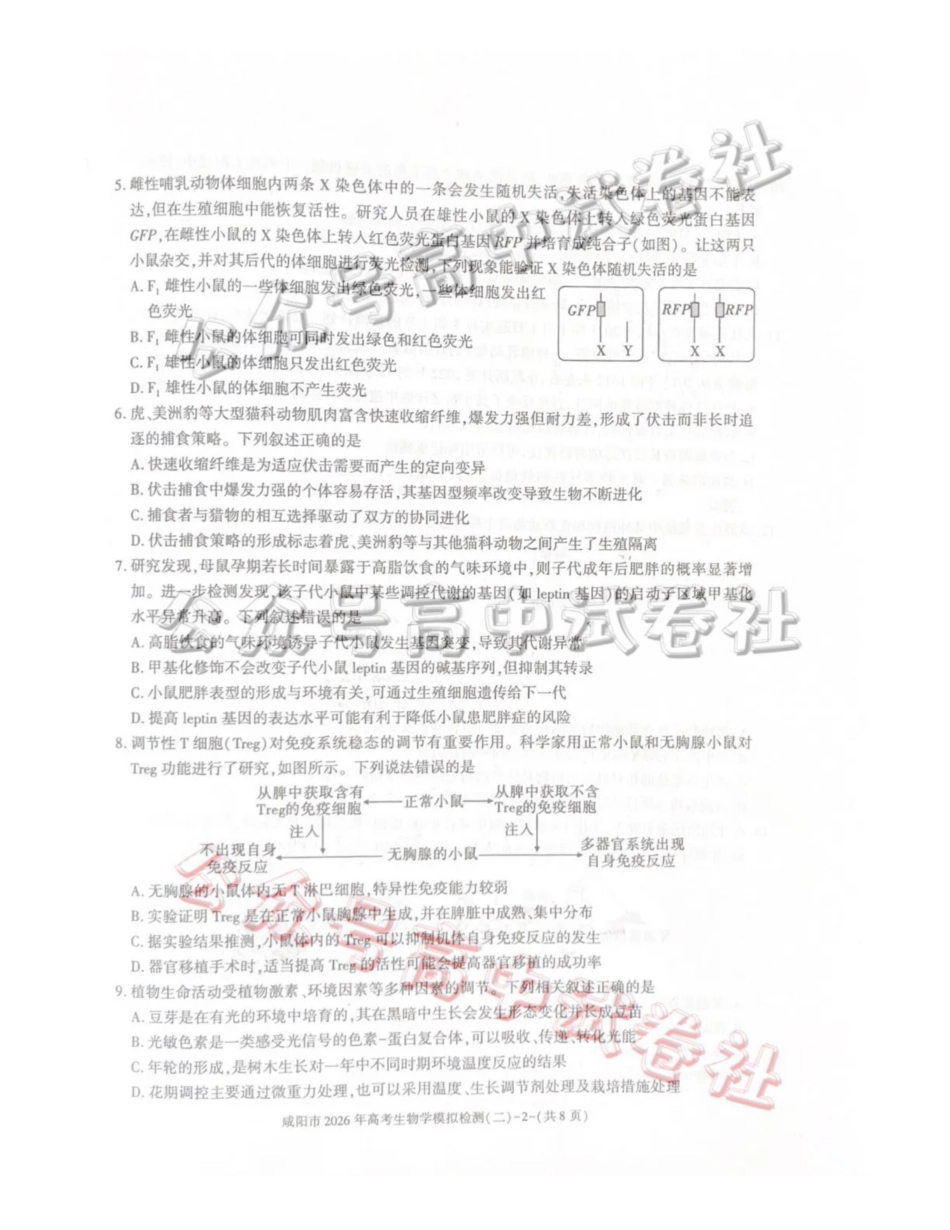 5. 雌性哺乳动物体细胞内两条 X 染色体中的一条会发生随机失活,失活染色体上的基因不能表
达,但在生殖细胞中能恢复活性。研究人员在雄性小鼠的 X 染色体上转入绿色荧光蛋白基因
GFP,在雌性小鼠的 X 染色体上转入红色荧光蛋白基因 RFP 并培育成纯合子(如图)。让这两只
小鼠杂交,并对其后代的体细胞进行荧光检测,下列现象能验证 X 染色体随机失活的是
A. F₁ 雌性小鼠的一些体细胞发出绿色荧光,一些体细胞发出红
色荧光
B. F₁ 雌性小鼠的体细胞可同时发出绿色和红色荧光
C. F₁ 雄性小鼠的体细胞只发出红色荧光
D. F₁ 雄性小鼠的体细胞不产生荧光
GFP RFP RFP
X Y X X
6. 虎、美洲豹等大型猫科动物肌肉富含快速收缩纤维,爆发力强但耐力差,形成了伏击而非长时追
逐的捕食策略。下列叙述正确的是
A. 快速收缩纤维是为适应伏击需要而产生的定向变异
B. 伏击捕食中爆发力强的个体易存活,其基因型频率改变导致生物不断进化
C. 捕食者与猎物的相互选择驱动了双方的协同进化
D. 伏击捕食策略的形成标志着虎、美洲豹等与其他猫科动物之间产生了生殖隔离
7. 研究发现,母鼠孕期若长时间暴露于高脂饮食的气味环境中,则子代成年后肥胖的概率显著增
加。进一步检测发现,该子代小鼠中某些调控代谢的基因(如 leptin 基因)的启动子区域甲基化
水平异常升高。下列叙述错误的是
A. 高脂饮食的气味环境诱导子代小鼠发生基因突变,导致其代谢异常
B. 甲基化修饰不会改变子代小鼠 leptin 基因的碱基序列,但抑制其转录
C. 小鼠肥胖表型的形成与环境有关,可通过生殖细胞遗传给下一代
D. 提高 leptin 基因的表达水平可能有利于降低小鼠患肥胖症的风险
8. 调节性 T 细胞(Treg)对免疫系统稳态的调节有重要作用。科学家用正常小鼠和无胸腺小鼠对
Treg 功能进行了研究,如图所示。下列说法错误的是
从脾中获取含有
Treg的免疫细胞
正常小鼠
从脾中获取不含
Treg的免疫细胞
注入
注入
不出现自身
免疫反应
无胸腺的小鼠
多器官系统出现
自身免疫反应
A. 无胸腺的小鼠体内无 T 淋巴细胞,特异性免疫能力较弱
B. 实验证明 Treg 是在正常小鼠胸腺中生成,并在脾脏中成熟、集中分布
C. 据实验结果推测,小鼠体内的 Treg 可以抑制机体自身免疫反应的发生
D. 器官移植手术时,适当提高 Treg 的活性可能会提高器官移植的成功率
9. 植物生命活动受植物激素、环境因素等多种因素的调节。下列相关叙述正确的是
A. 豆芽是在有光的环境中培育的,其在黑暗中生长会发生形态变化并长成豆苗
B. 光敏色素是一类感受光信号的色素-蛋白复合体,可以吸收、传递、转化光能
C. 年轮的形成,是树木生长对一年中不同时期环境温度反应的结果
D. 花期调控主要通过微重力处理,也可以采用温度、生长调节剂处理及栽培措施处理
咸阳市 2026 年高考生物学模拟检测(二)-2-(共 8 页)
公众号高中试卷社
公众号高中试卷社
公众号高中试卷社